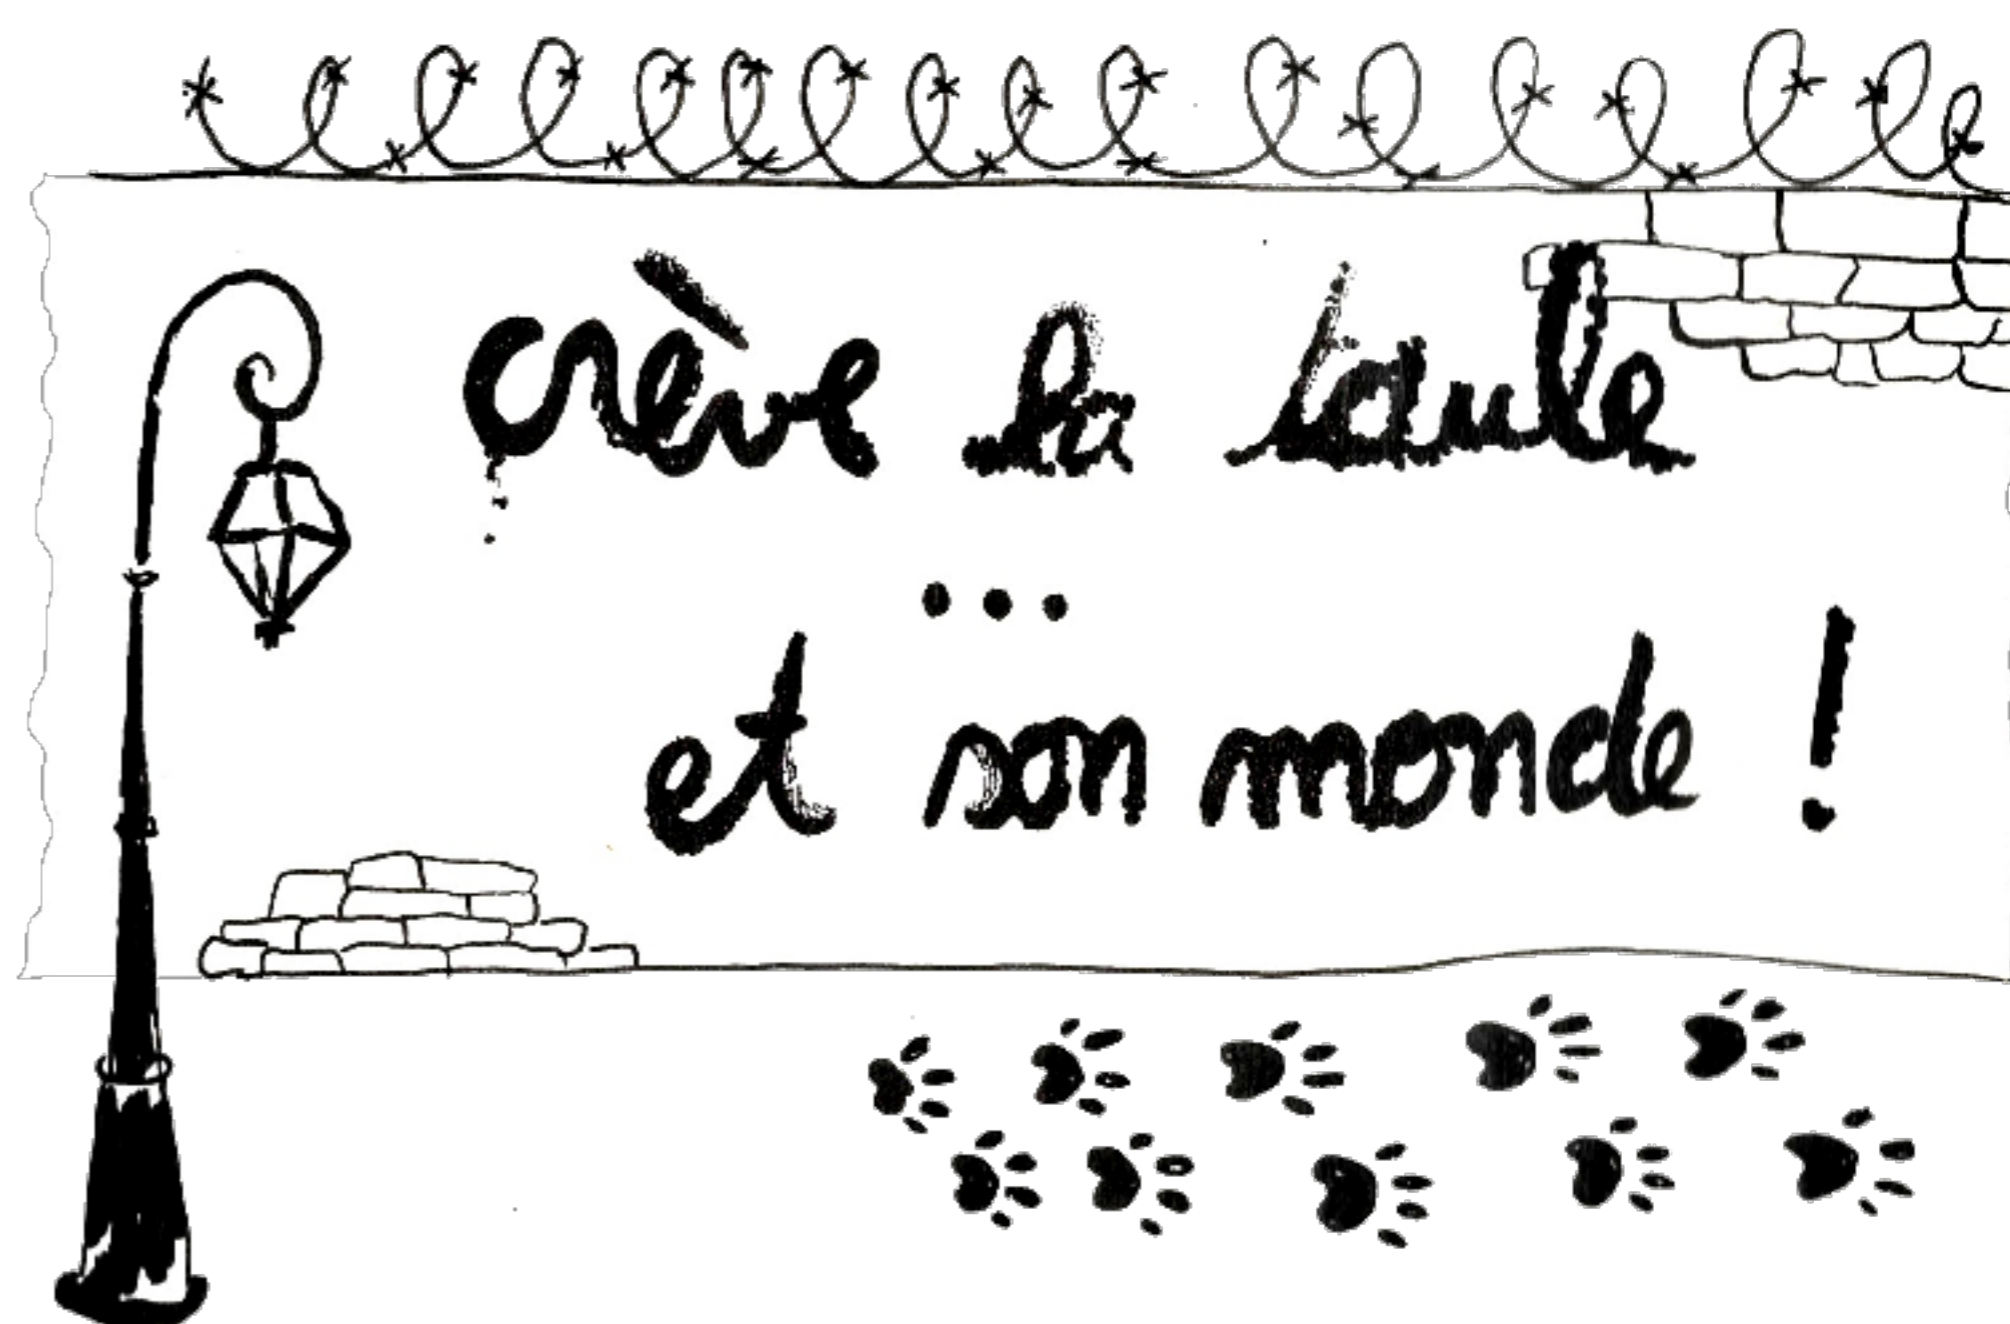 crève la taule
...
et son monde !